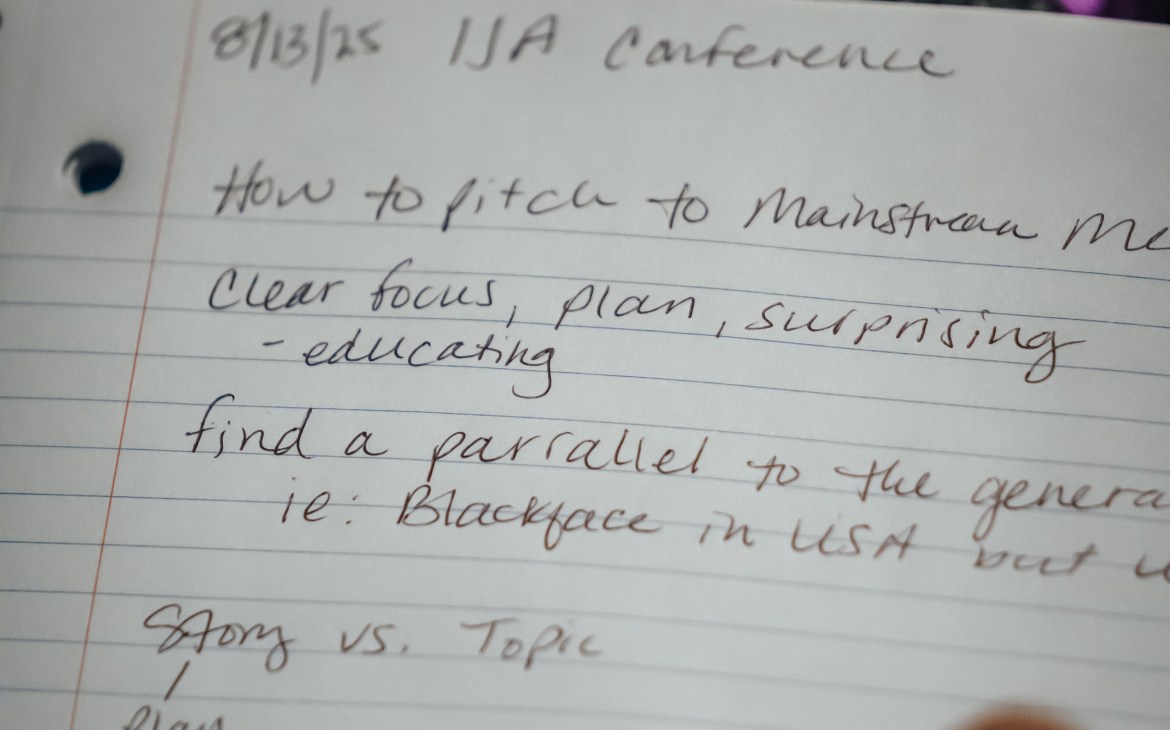 8/13/25 IJA Conference
How to pitch to Mainstream Me
Clear focus, plan, surprising
- educating
find a parrallel to the genera
ie: Blackface in USA but
Story vs. Topic
Plan